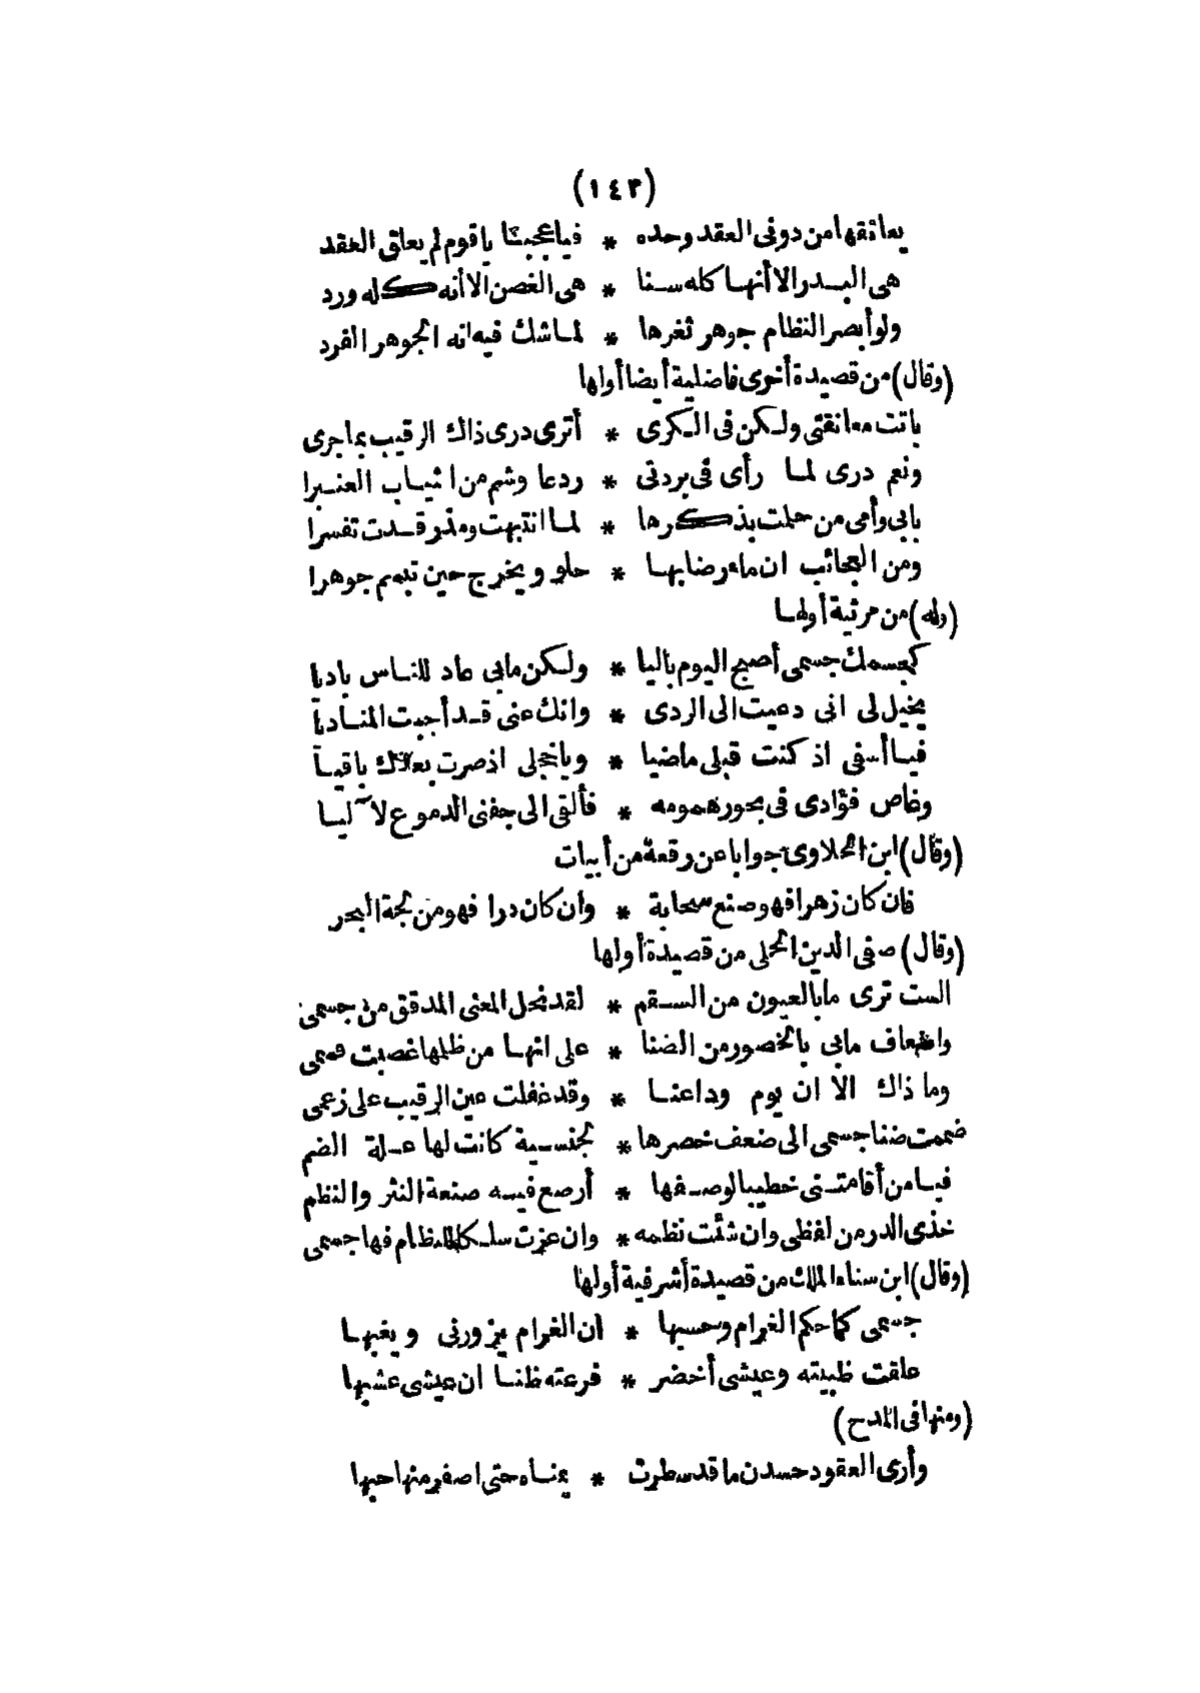 (١٤٣)
يعانقها من دونى العقد وحده * فيا عجبتا يا قوم لم يعانق العقد
هى البدر الا أنها كله سنا * هى الغصن الا أنه كله ورد
ولو أبصر النظام جوهر ثغرها * لما شك فيه انه الجوهر الفرد
(وقال) من قصيدة أخرى فاضلية أيضا أولها
باتت معانقتى ولكن فى الكرى * أترى درى ذاك الرقيب بما جرى
ونعم درى لما رأى فى بردتى * ردعا وشم من اثياب العنبرا
بابى وأمى من حلمت بذكرها * لما انتبهت ومذ رقدت تفسرا
ومن العجائب ان ماء رضابها * حلو ويخرج حين تبسم جوهرا
(وله) من مرثية أولها
كجسمك جسمى أصبح اليوم باليا * ولكن مابى عاد للناس باديا
يخيل لى انى دعيت الى الردى * وانك عنى قد أجبت المناديا
فيا أسفى اذ كنت قبلى ماضيا * وياخجلى اذ صرت بعدك باقيا
وغاص فؤادى فى بحور همومه * فألقى الى جفنى الدموع لآليا
(وقال) ابن الحلاوى جوابا عن رقعة من أبيات
فان كان زهرا فهو صنع سحابة * وان كان درا فهو من لجة البحر
(وقال) صفى الدين الحلى من قصيدة أولها
الست ترى ما بالعيون من السقم * لقد نحل المعنى المدقق من جسمى
واضعاف مابى بالخصور من الضنا * على انها من ظلمها غصبت قسمى
وما ذاك الا ان يوم وداعنا * وقد غفلت عين الرقيب على زعمى
ضممت ضنا جسمى الى ضعف خصرها * لجنسية كانت لها علة الضم
فيا من أقامتنى خطيبا لوصفها * أرصع فيه صنعة النثر والنظم
خذى الدر من لفظى وان شئت نظمه * وان عزت سلكا للنظام فها جسمى
(وقال) ابن سناء الملك من قصيدة أشرفية أولها
جسمى كما حكم الغرام وحسبها * ان الغرام يزورنى ويغبها
علقت ظبيته وعيشى أخضر * فرعته ظنا ان عيشى عشبها
(ومنها فى المدح)
وأرى العقود حسدن ما قد سطرت * يمناه حتى اصفر منها حبها